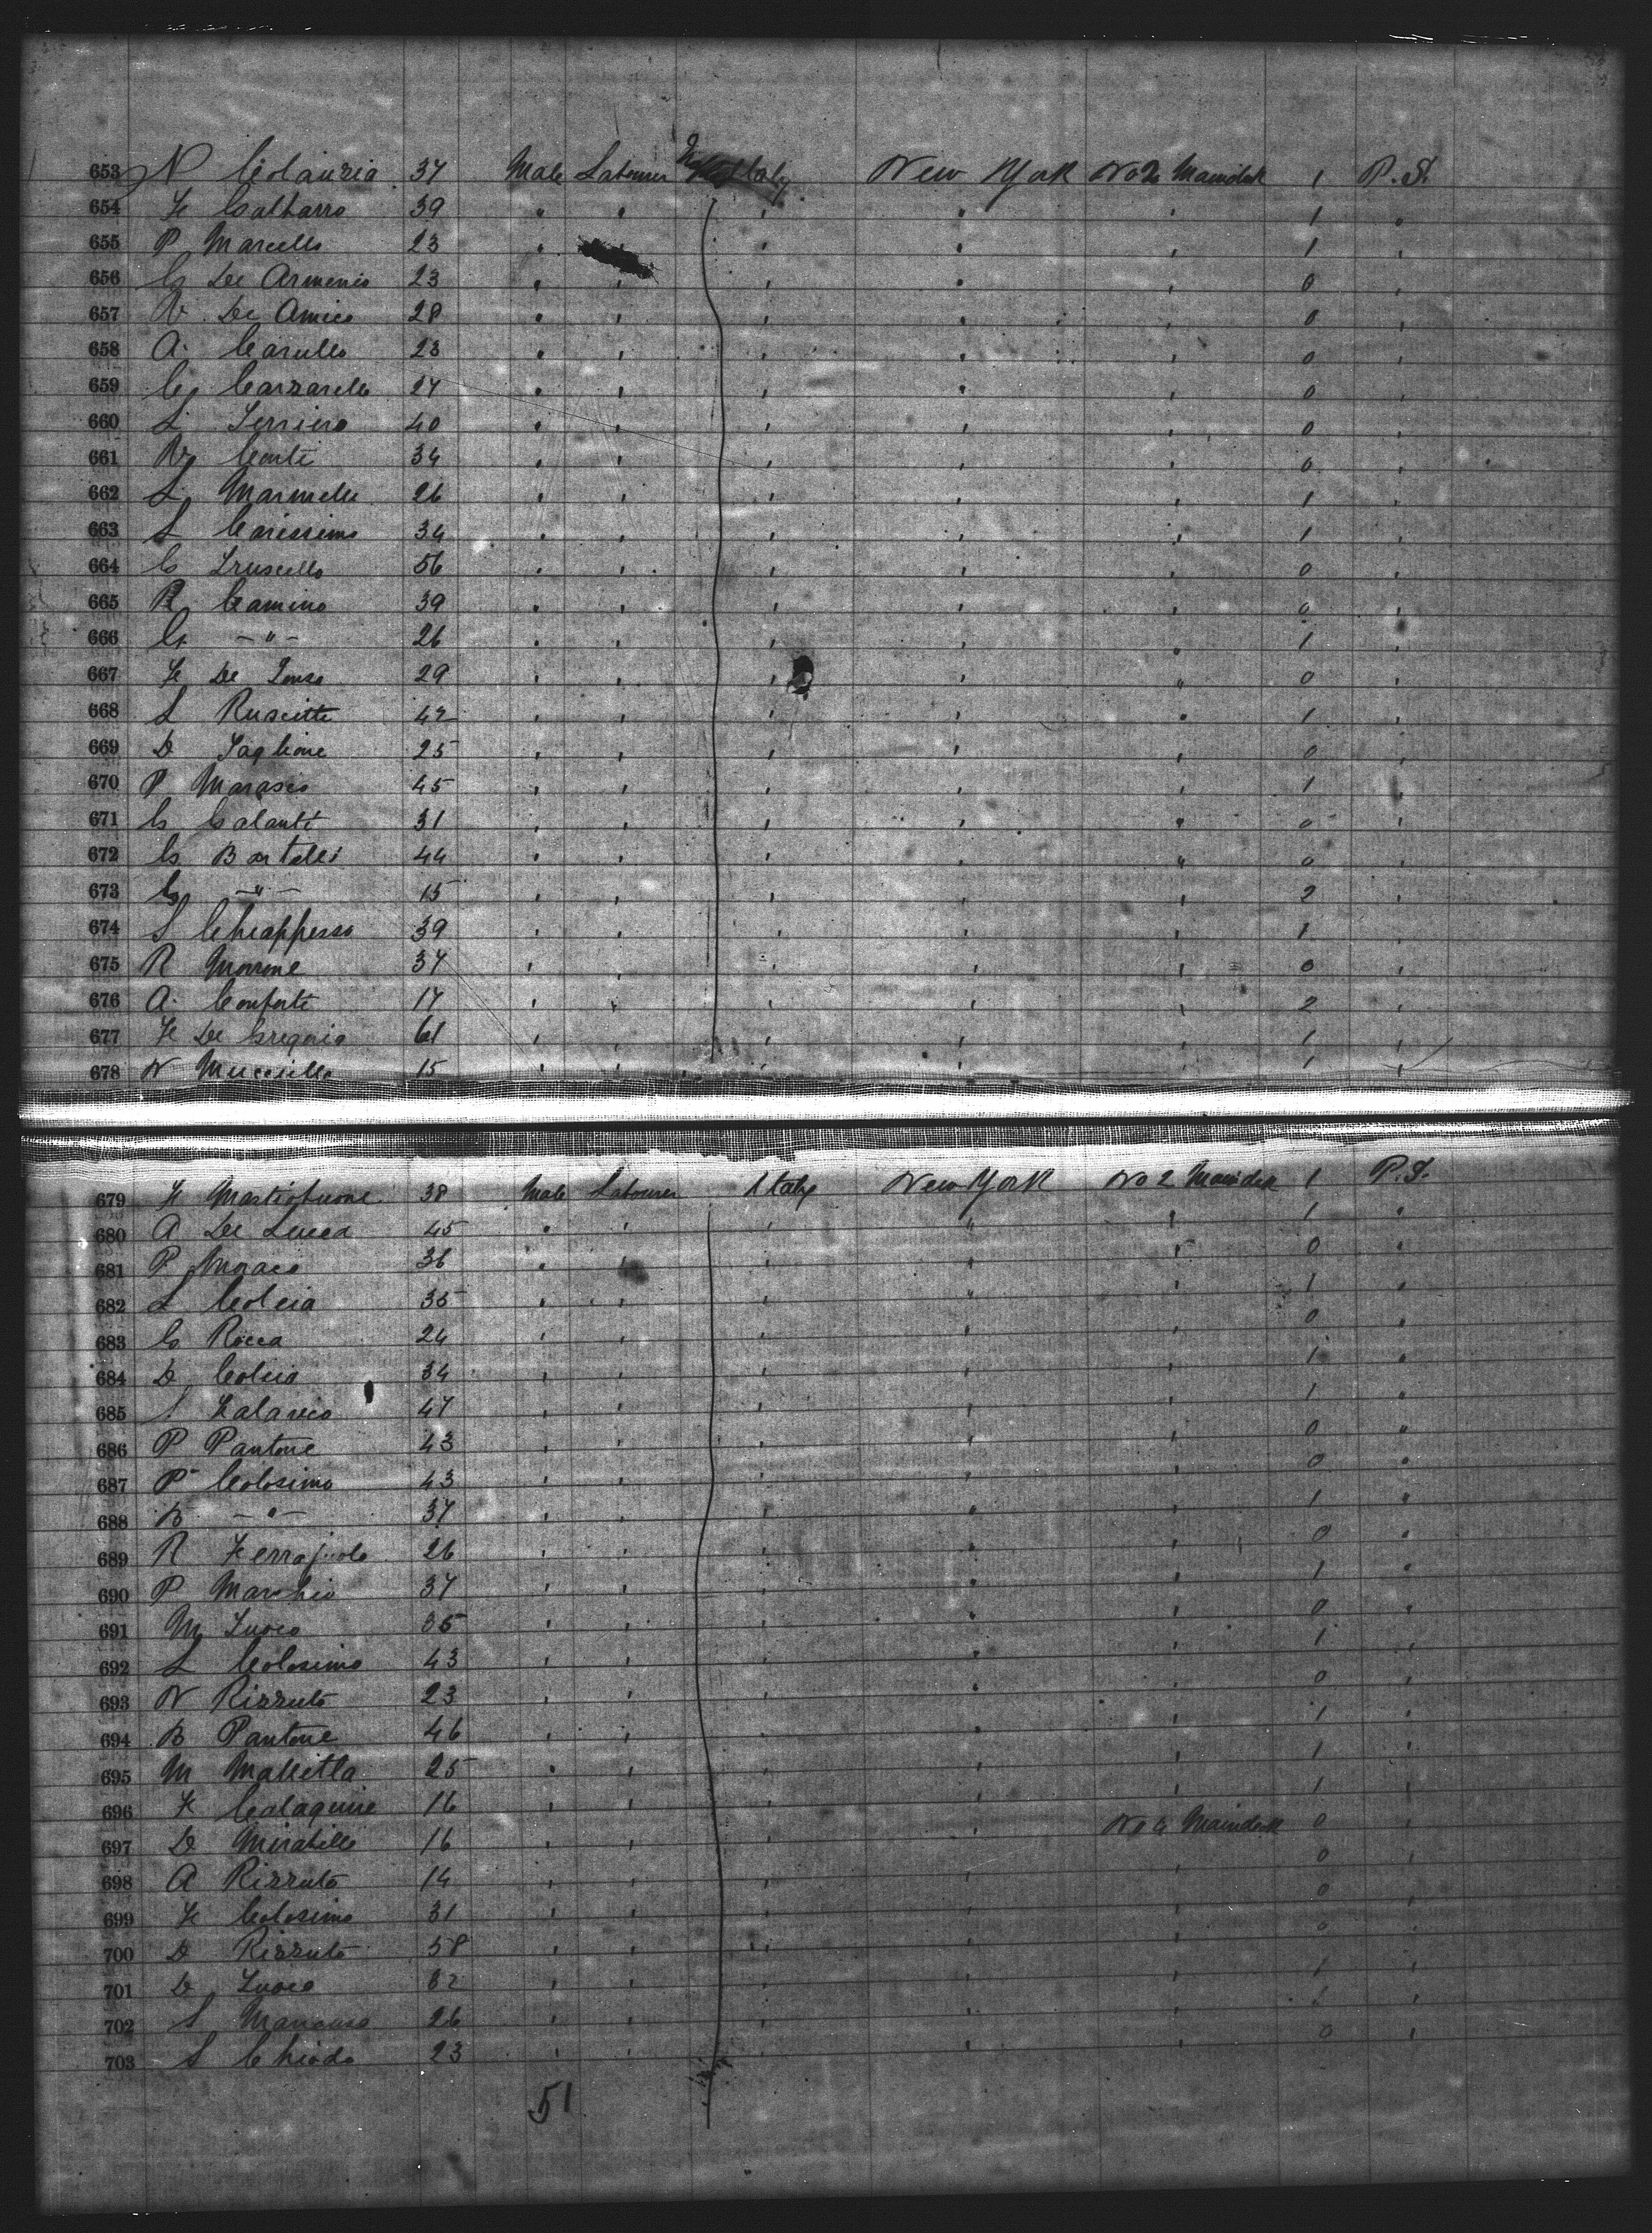 653 N Colauzia 37 Male Labourer Italy New York No 2 Maindeck 1 P.S.
654 F Galbarro 39 " " " " " 1 "
655 P Marcello 23 " " " " " 1 "
656 G De Armenio 23 " " " " " 0 "
657 N De Amico 28 " " " " " 0 "
658 A. Carullo 23 " " " " " 0 "
659 C Carzarello 27 " " " " " 0 "
660 L 40 " " " " " 0 "
661 Conte 34 " " " " " 0 "
662 L Marinelli 26 " " " " " 1 "
663 S Carissimo 34 " " " " " 1 "
664 G Truscello 56 " " " " " 0 "
665 R Camino 39 " " " " " 0 "
666 G - " - 26 " " " " " 1 "
667 F De 29 " " " " " 0 "
668 L Ruscitti 42 " " " " " 1 "
669 D Taglione 25 " " " " " 0 "
670 P Marasco 45 " " " " " 1 "
671 G Galanti 31 " " " " " 0 "
672 G Bartolei 44 " " " " " 0 "
673 G - " - 15 " " " " " 2 "
674 S Chiappesso 39 " " " " " 1 "
675 R Morrone 37 " " " " " 0 "
676 A. Conforti 17 " " " " " 2 "
677 F De Gregorio 61 " " " " " 1 "
678 N Mucciello 15 " " " " " 1 "
679 F 38 Male Labourer Italy New York No 2 Maindeck 1 P.S.
680 A De Lucca 45 " " " " " 1 "
681 P Moraco 36 " " " " " 0 "
682 L Colcia 35 " " " " " 1 "
683 G Rocca 24 " " " " " 0 "
684 D Colcia 34 " " " " " 1 "
685 Talavio 47 " " " " " 1 "
686 P Pantone 43 " " " " " 0 "
687 P Colosimo 43 " " " " " 0 "
688 B - " - 37 " " " " " 1 "
689 R 26 " " " " " 0 "
690 P Marchio 37 " " " " " 1 "
691 M Tuoco 35 " " " " " 0 "
692 L Colosimo 43 " " " " " 1 "
693 N Rizzuto 23 " " " " " 0 "
694 B Pantone 46 " " " " " 1 "
695 M Malietta 25 " " " " " 1 "
696 F 16 " " " " " 1 "
697 D Mirabille 16 " " " " No 4 Maindeck 0 "
698 A Rizzuto 14 " " " " " 0 "
699 F Colosimo 31 " " " " " 0 "
700 D Rizzuto 58 " " " " " 0 "
701 D Tuoco 32 " " " " " 1 "
702 S Mancuso 26 " " " " " "
703 S Chiodo 23 " " " " " 0 "
51